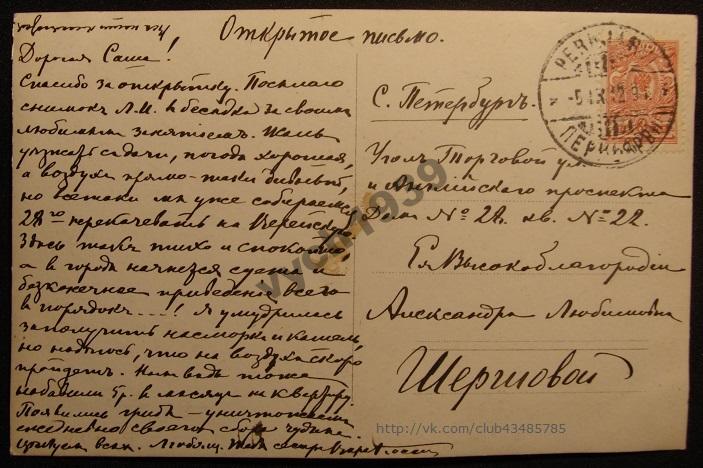 Открытое письмо.
Дорогая Саша!
Спасибо за открытку. Посылаю
снимокъ Л.И. въ беседкѣ за своимъ
любимымъ занятіемъ. Жаль
уѣзжать съ дачи, погода хорошая,
а воздухъ прямо-таки дивный,
но всетаки мы уже собираемся
28го переѣзжать на Верейскую
Здѣсь такъ тихо и спокойно
а въ городѣ начнется суета и
безконечное приведеніе всего
въ порядокъ...! Я умудрилась
заполучить насморкъ и кашель,
но надѣюсь, что на воздухѣ скоро
пройдетъ. Намъ вѣдь тоже
набавили 5р. въ мѣсяцъ на квартиру.
Появились грибы - уничтожаемъ
ежедневно своего сбора
цѣлую всѣхъ. Любящ. Тебя сестра
С. Петербургъ.
Уголъ Торговой ул.
и Англійскаго проспекта
Домъ № 28. кв. № 22.
Ея Высокоблагородію
Александрѣ Любимовнѣ
Шергиовой
ПЕРКЪЯРВИ
vych1939
http://vk.com/club43485785